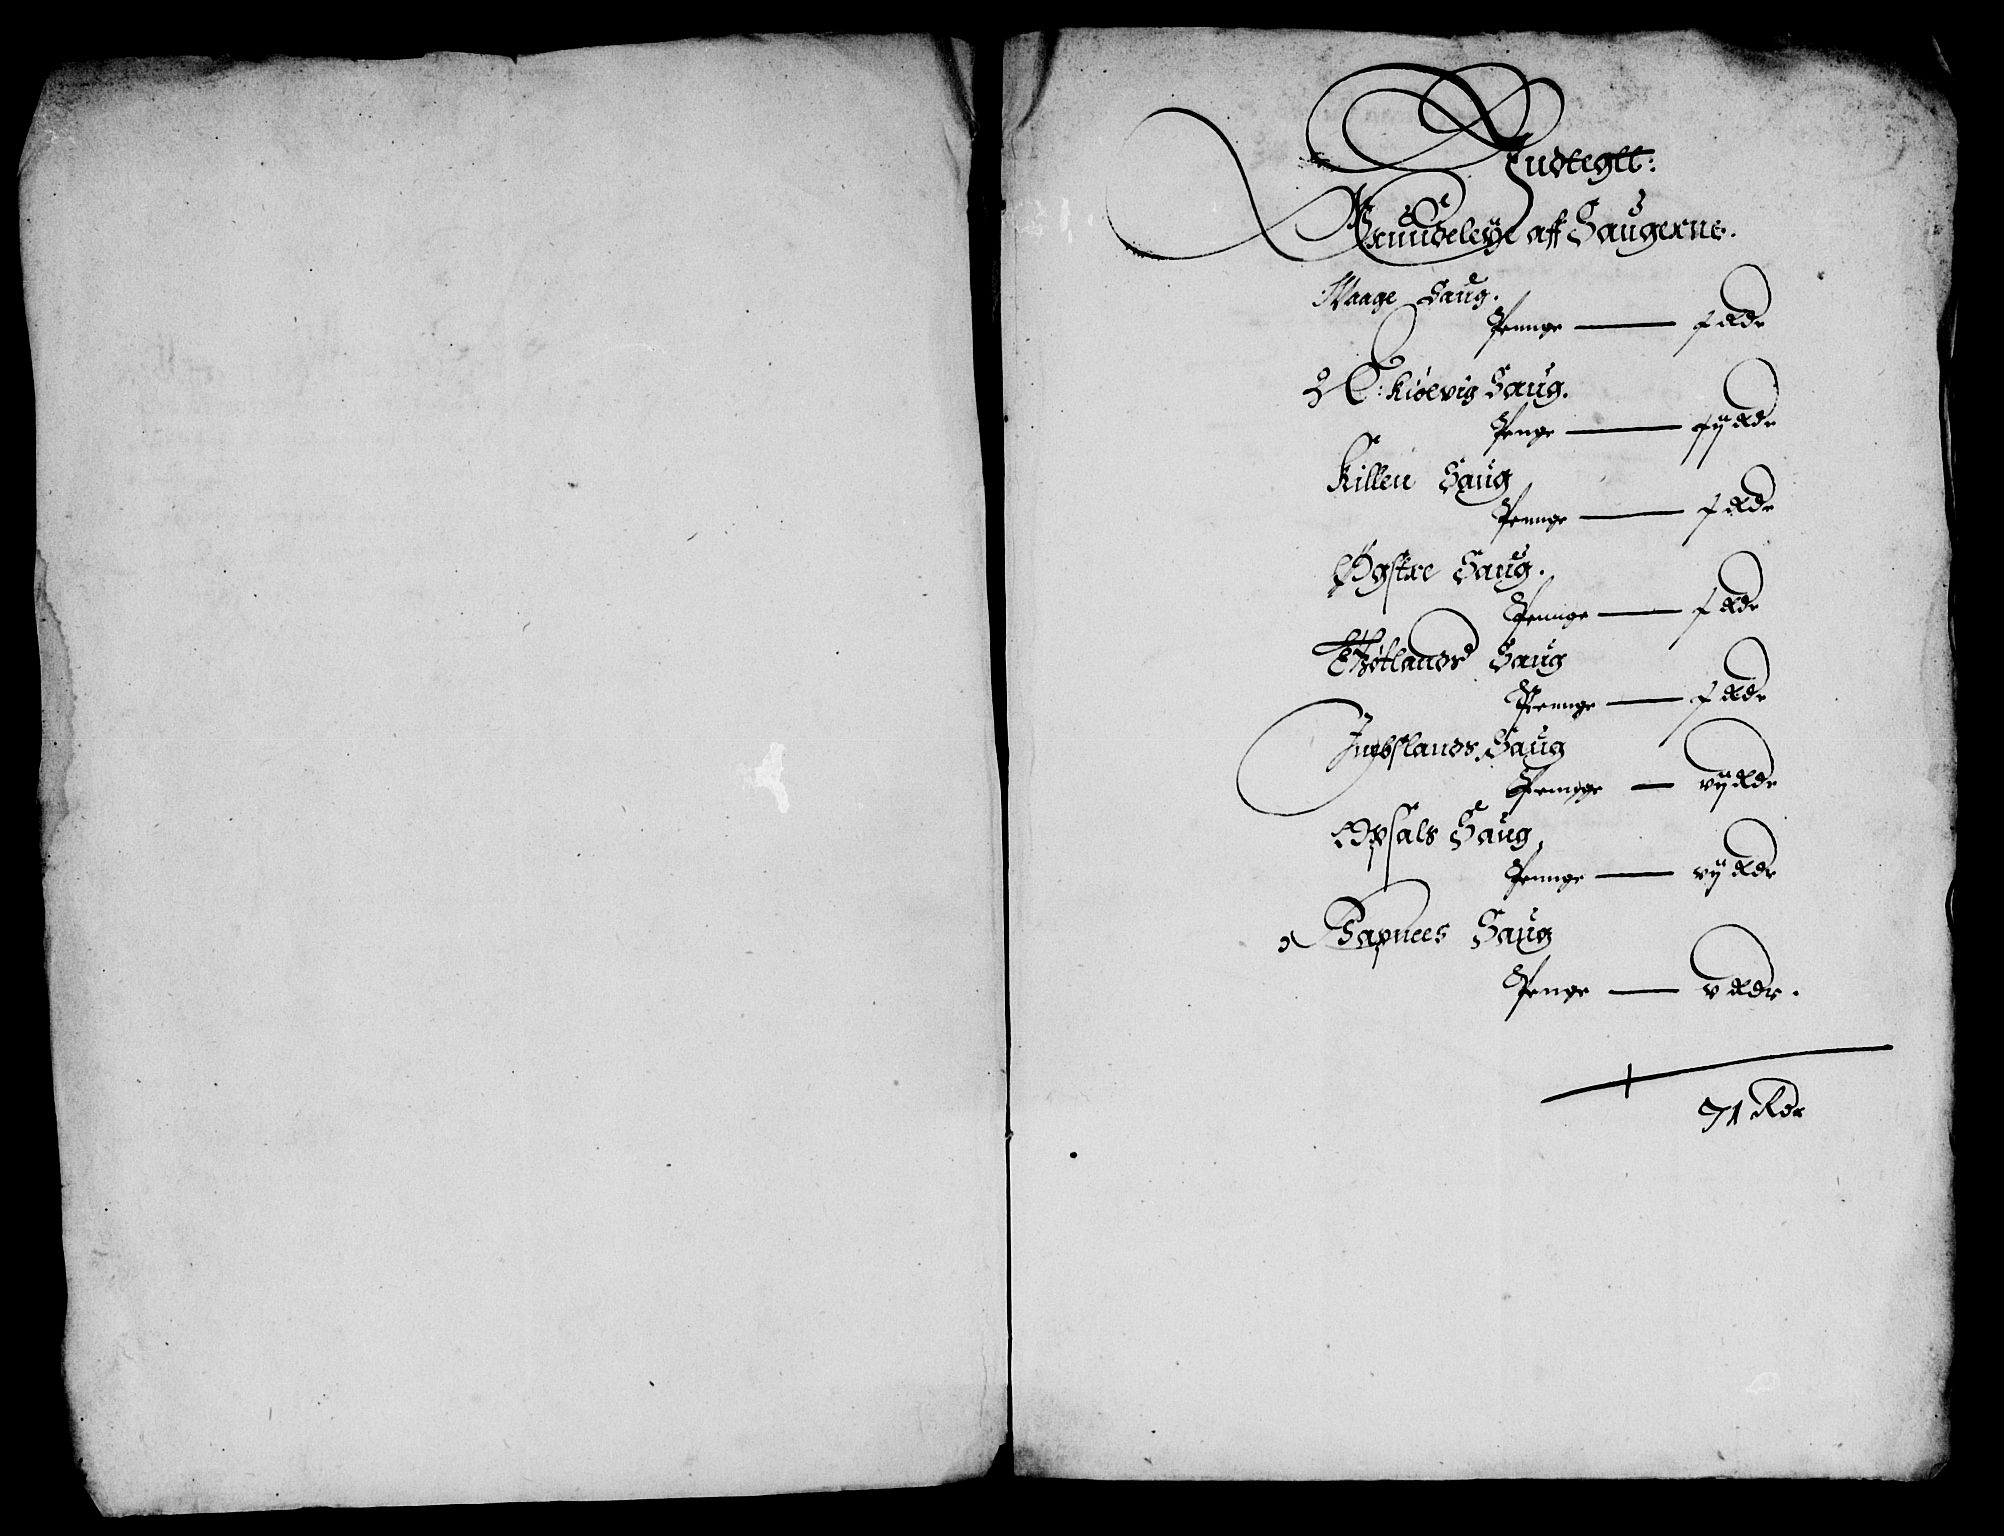 Indtegtt:
Grundeleye aff Saugerne.
Waage Saug.
Pennge — x Rdr
Kiølvig Saug.
Penge — xij Rdr
Killen Saug
Pennge — x Rdr
Øystre Saug.
Pennge — x Rdr
Høtlandz Saug
Pennge — x Rdr
Jmbslands Saug
Pennge — vij Rdr
Opsals Saug
Pennge — vij Rdr
Sapnees Saug
Penge — v Rdr.
71 Rdr